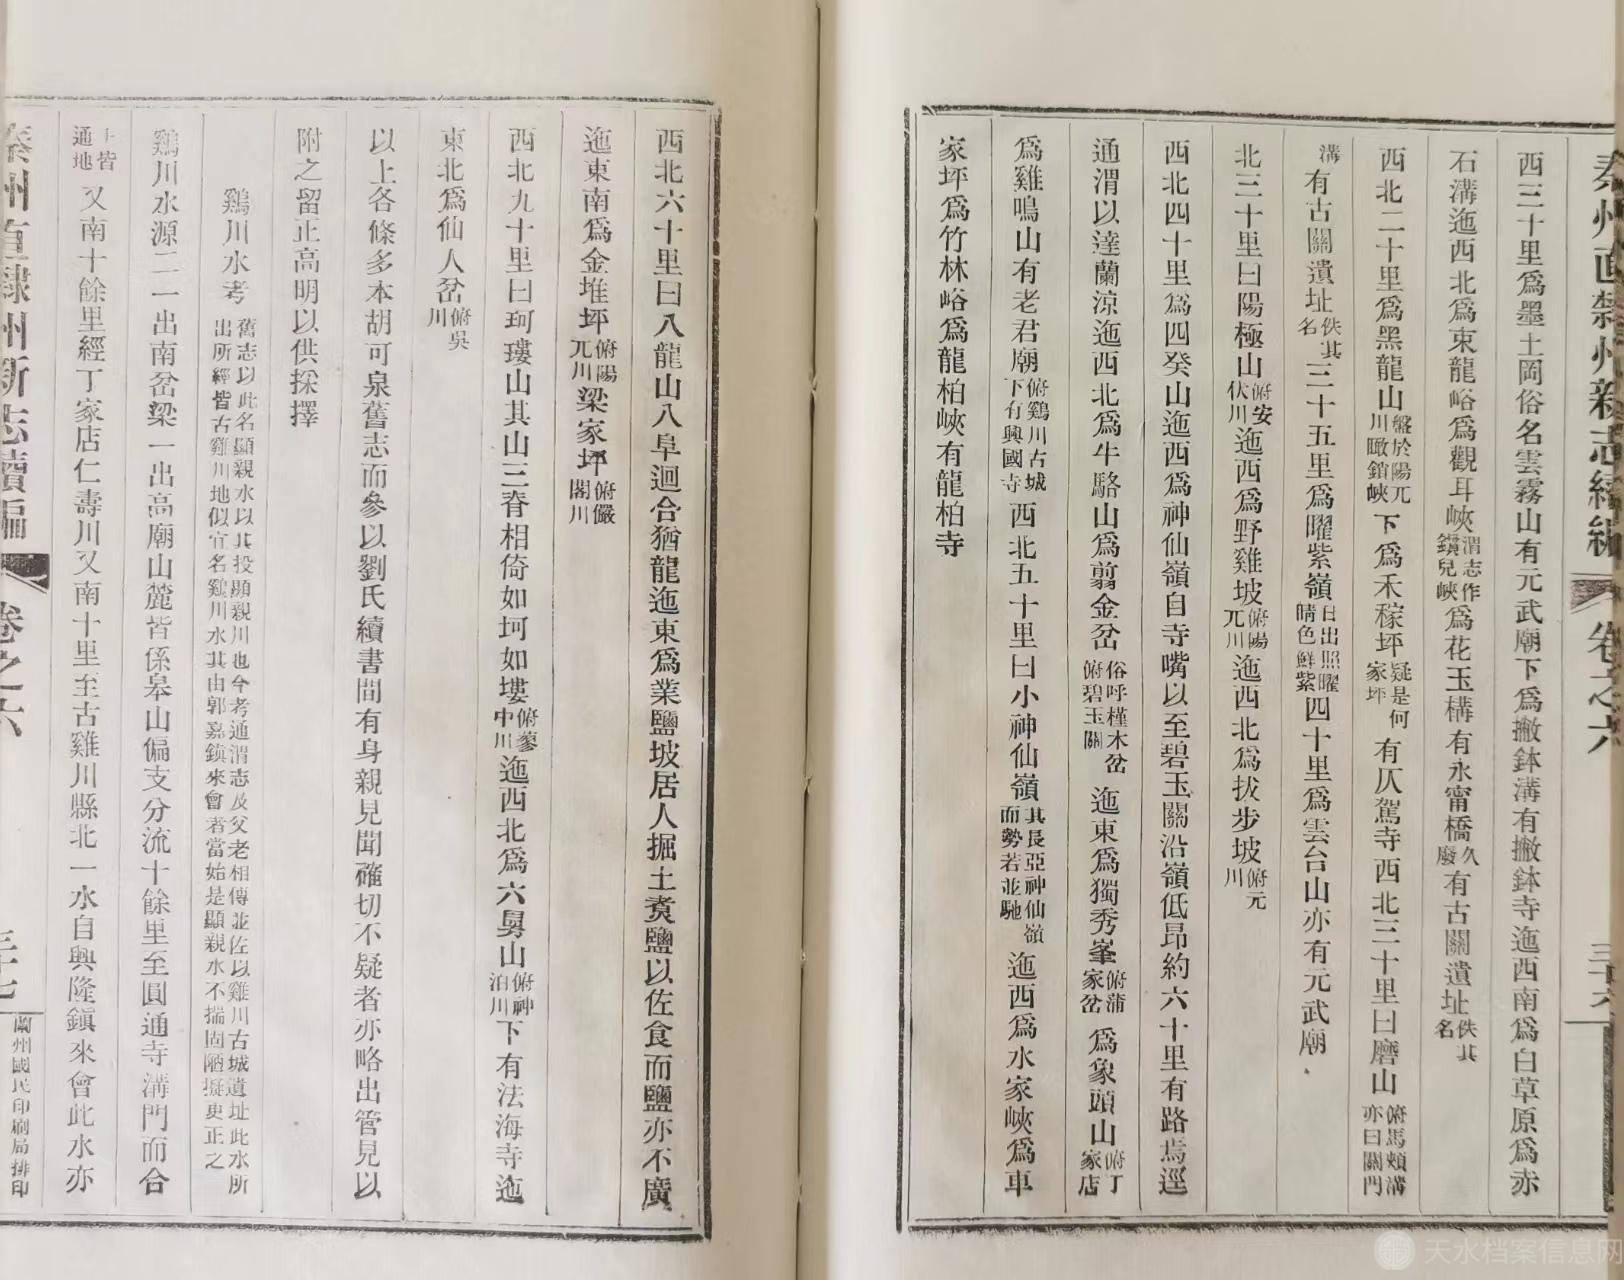 秦州直隸州新志續編 卷之六 三十六
西三十里爲墨土岡俗名雲霧山有元武廟下爲撇鉢溝有撇鉢寺迤西南爲白草原爲赤
石溝迤西北爲東龍峪爲觀耳峽渭志作鎖兒峽爲花玉構有永甯橋久廢有古關遺址佚其名
西北二十里爲黑龍山盤於陽兀川瞰鎖峽下爲禾稼坪疑是何家坪有仄駕寺西北三十里曰磨山俯馬頰溝亦曰關門
溝有古關遺址佚其名三十五里爲曜紫嶺日出照曜晴色鮮紫四十里爲雲台山亦有元武廟
北三十里曰陽極山俯安伏川迤西爲野雞坡俯陽兀川迤西北爲拔步坡俯元川
西北四十里爲四癸山迤西爲神仙嶺自寺嘴以至碧玉關沿嶺低昂約六十里有路焉逕
通渭以達蘭涼迤西北爲牛駱山爲翦金岔俗呼槿木岔俯碧玉關迤東爲獨秀峯俯蒲家岔爲象頭山俯丁家店
爲雞鳴山有老君廟俯鷄川古城下有興國寺西北五十里曰小神仙嶺其長亞神仙嶺而勢若並馳迤西爲水家峽爲車
家坪爲竹林峪爲龍柏峽有龍柏寺
西北六十里曰八龍山八阜迴合猶龍迤東爲業鹽坡居人掘土煑鹽以佐食而鹽亦不廣
迤東南爲金堆坪俯陽兀川梁家坪俯儼閣川
西北九十里曰珂瓊山其山三脊相倚如坷如塿俯蓼中川迤西北爲六舅山俯神泊川下有法海寺迤
東北爲仙人岔俯吳川
以上各條多本胡可泉舊志而參以劉氏續書間有身親見聞確切不疑者亦略出管見以
附之留正高明以供採擇
鷄川水考舊志以此名顯親水以其投顯親川也今考通渭志及父老相傳並佐以雞川古城遺址此水所出所經皆古雞川地似宜名鷄川水其由郭嘉鎮來會者當始是顯親水不揣固陋擬更正之
鷄川水源二一出南岔梁一出高廟山麓皆係皋山偏支分流十餘里至圓通寺溝門而合
上皆通地又南十餘里經丁家店仁壽川又南十里至古雞川縣北一水自興隆鎮來會此水亦
秦州直隸州新志續編 卷之六 三十七 蘭州國民印刷局排印
天水档案信息网